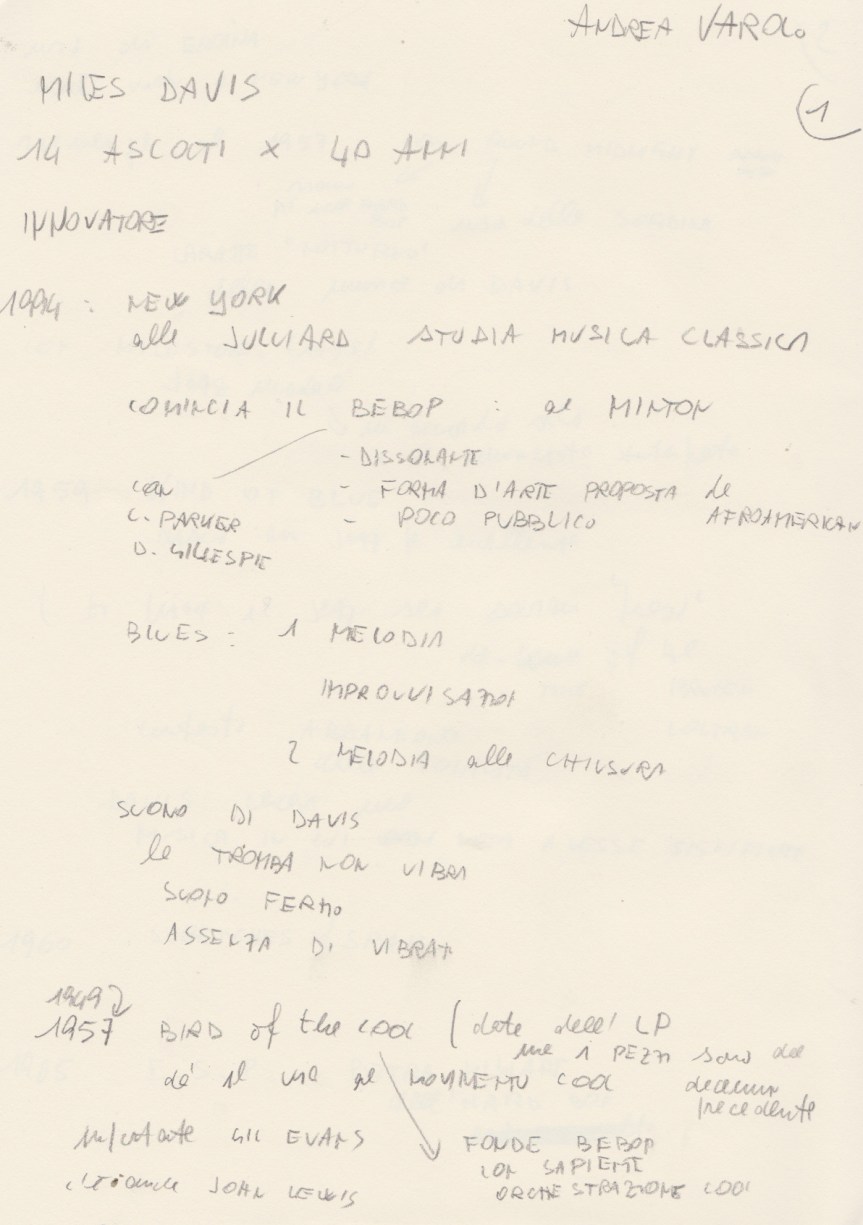 ANDREA VAROLO
MILES DAVIS
1
14 ASCOLTI X 40 ANNI
INNOVATORE
1944 : NEW YORK
alla JULLIARD STUDIA MUSICA CLASSICA
COMINCIA IL BEBOP : al MINTON
- DISSONANTE
con - FORMA D'ARTE PROPOSTA da
C. PARKER - POCO PUBBLICO AFROAMERICAN
D. GILLESPIE
BLUES : 1 MELODIA
IMPROVVISAZIONI
2 MELODIA alla CHIUSURA
SUONO DI DAVIS
la TROMBA NON VIBRA
SUONO FERMO
ASSENZA DI VIBRAT
1949
1957 BIRD of the COOL ( data dell' LP
ma i PEZZI sono del
dà il via al MOVIMENTO COOL decennio
precedente
importante GIL EVANS FONDE BEBOP
CON SAPIENTE
c'è anche JOHN LEWIS ORCHESTRAZIONE COOL